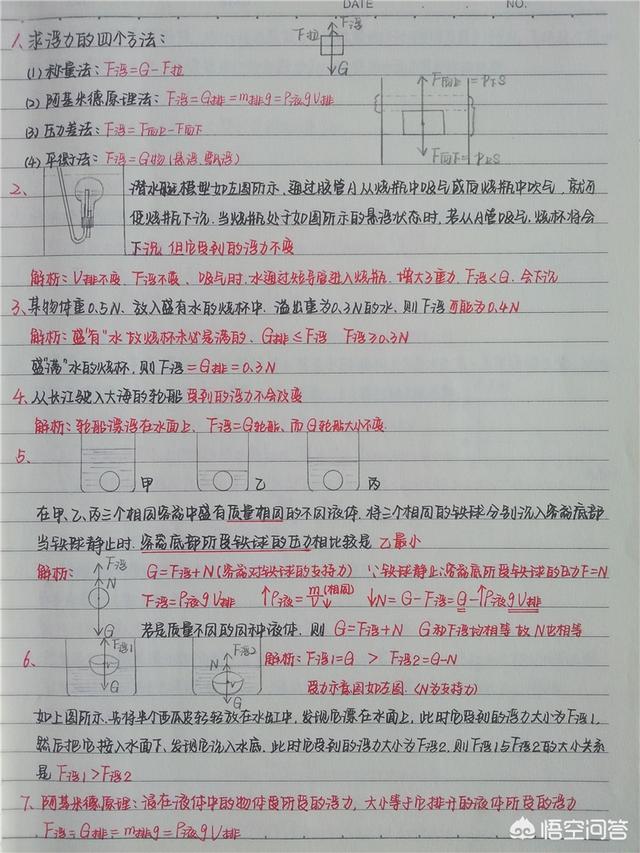 DATE . . NO.
1、求浮力的四个方法:
F拉 F浮 G
(1) 称量法: F浮=G-F拉
(2) 阿基米德原理法: F浮=G排=m排g=ρ液gV排
F向上=P下S
(3) 压力差法: F浮=F向上-F向下
(4) 平衡法: F浮=G物(悬浮、飘浮)
F向下=P上S
2、潜水艇模型如左图所示,通过胶管A从烧瓶中吸气或向烧瓶中吹气,就可
使烧瓶下沉.当烧瓶处于如图所示的悬浮状态时,若从A管吸气,烧杯将会
下沉,但它受到的浮力不变
解析: V排不变、F浮不变、吸气时,水通过短导管进入烧瓶,增大了重力,F浮<G,会下沉
3、某物体重0.5N、放入盛有水的烧杯中,溢出重为0.3N的水、则F浮可能为0.4N
解析:盛"有"水故烧杯未必是满的、G排≤F浮 F浮≥0.3N
盛"满"水的烧杯,则F浮=G排=0.3N
4、从长江驶入大海的轮船受到的浮力不会改变
解析:轮船漂浮在水面上、F浮=G轮船、而G轮船大小不变
5、
甲 乙 丙
在甲、乙、丙三个相同容器中盛有质量相同的不同液体.将三个相同的铁球分别沉入容器底部
当铁球静止时.容器底部所受铁球的压力相比较是 乙最小
解析: F浮 N G G=F浮+N(容器对铁球的支持力) ∵铁球静止∴容器底所受铁球的压力F=N
F浮=ρ液gV排 ↑ρ液=m(相同)/V↓ ↓N=G-F浮=G-↑ρ液gV排
若是质量不同的同种液体.则G=F浮+N G和F浮均相等故N也相等
6、
F浮1 G N F浮2 G 解析:F浮1=G > F浮2=G-N
受力示意图如左图.(N为支持力)
如上图所示.先将半个西瓜皮轻轻放在水缸中,发现它漂在水面上,此时它受到的浮力大小为F浮1,
然后把它按入水面下、发现它沉入水底.此时它受到的浮力大小为F浮2,则F浮1与F浮2的大小关系
是 F浮1>F浮2
7、阿基米德原理:浸在液体中的物体受所受的浮力,大小等于它排开的液体所受的浮力
F浮=G排=m排g=ρ液gV排
悟空问答